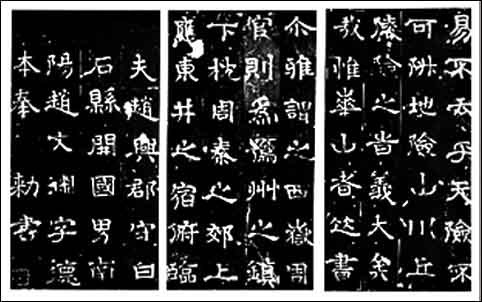 易不云乎天險不
可升地險山川丘
陵險之旹義大矣
哉惟華山者竺書
尒雅謂之西嶽周
官則為豫州之鎮
下枕周秦之郊上
應東井之宿俯臨
夫趙興郡守白
石縣開國男南
陽趙文淵字德
本奉 勅書